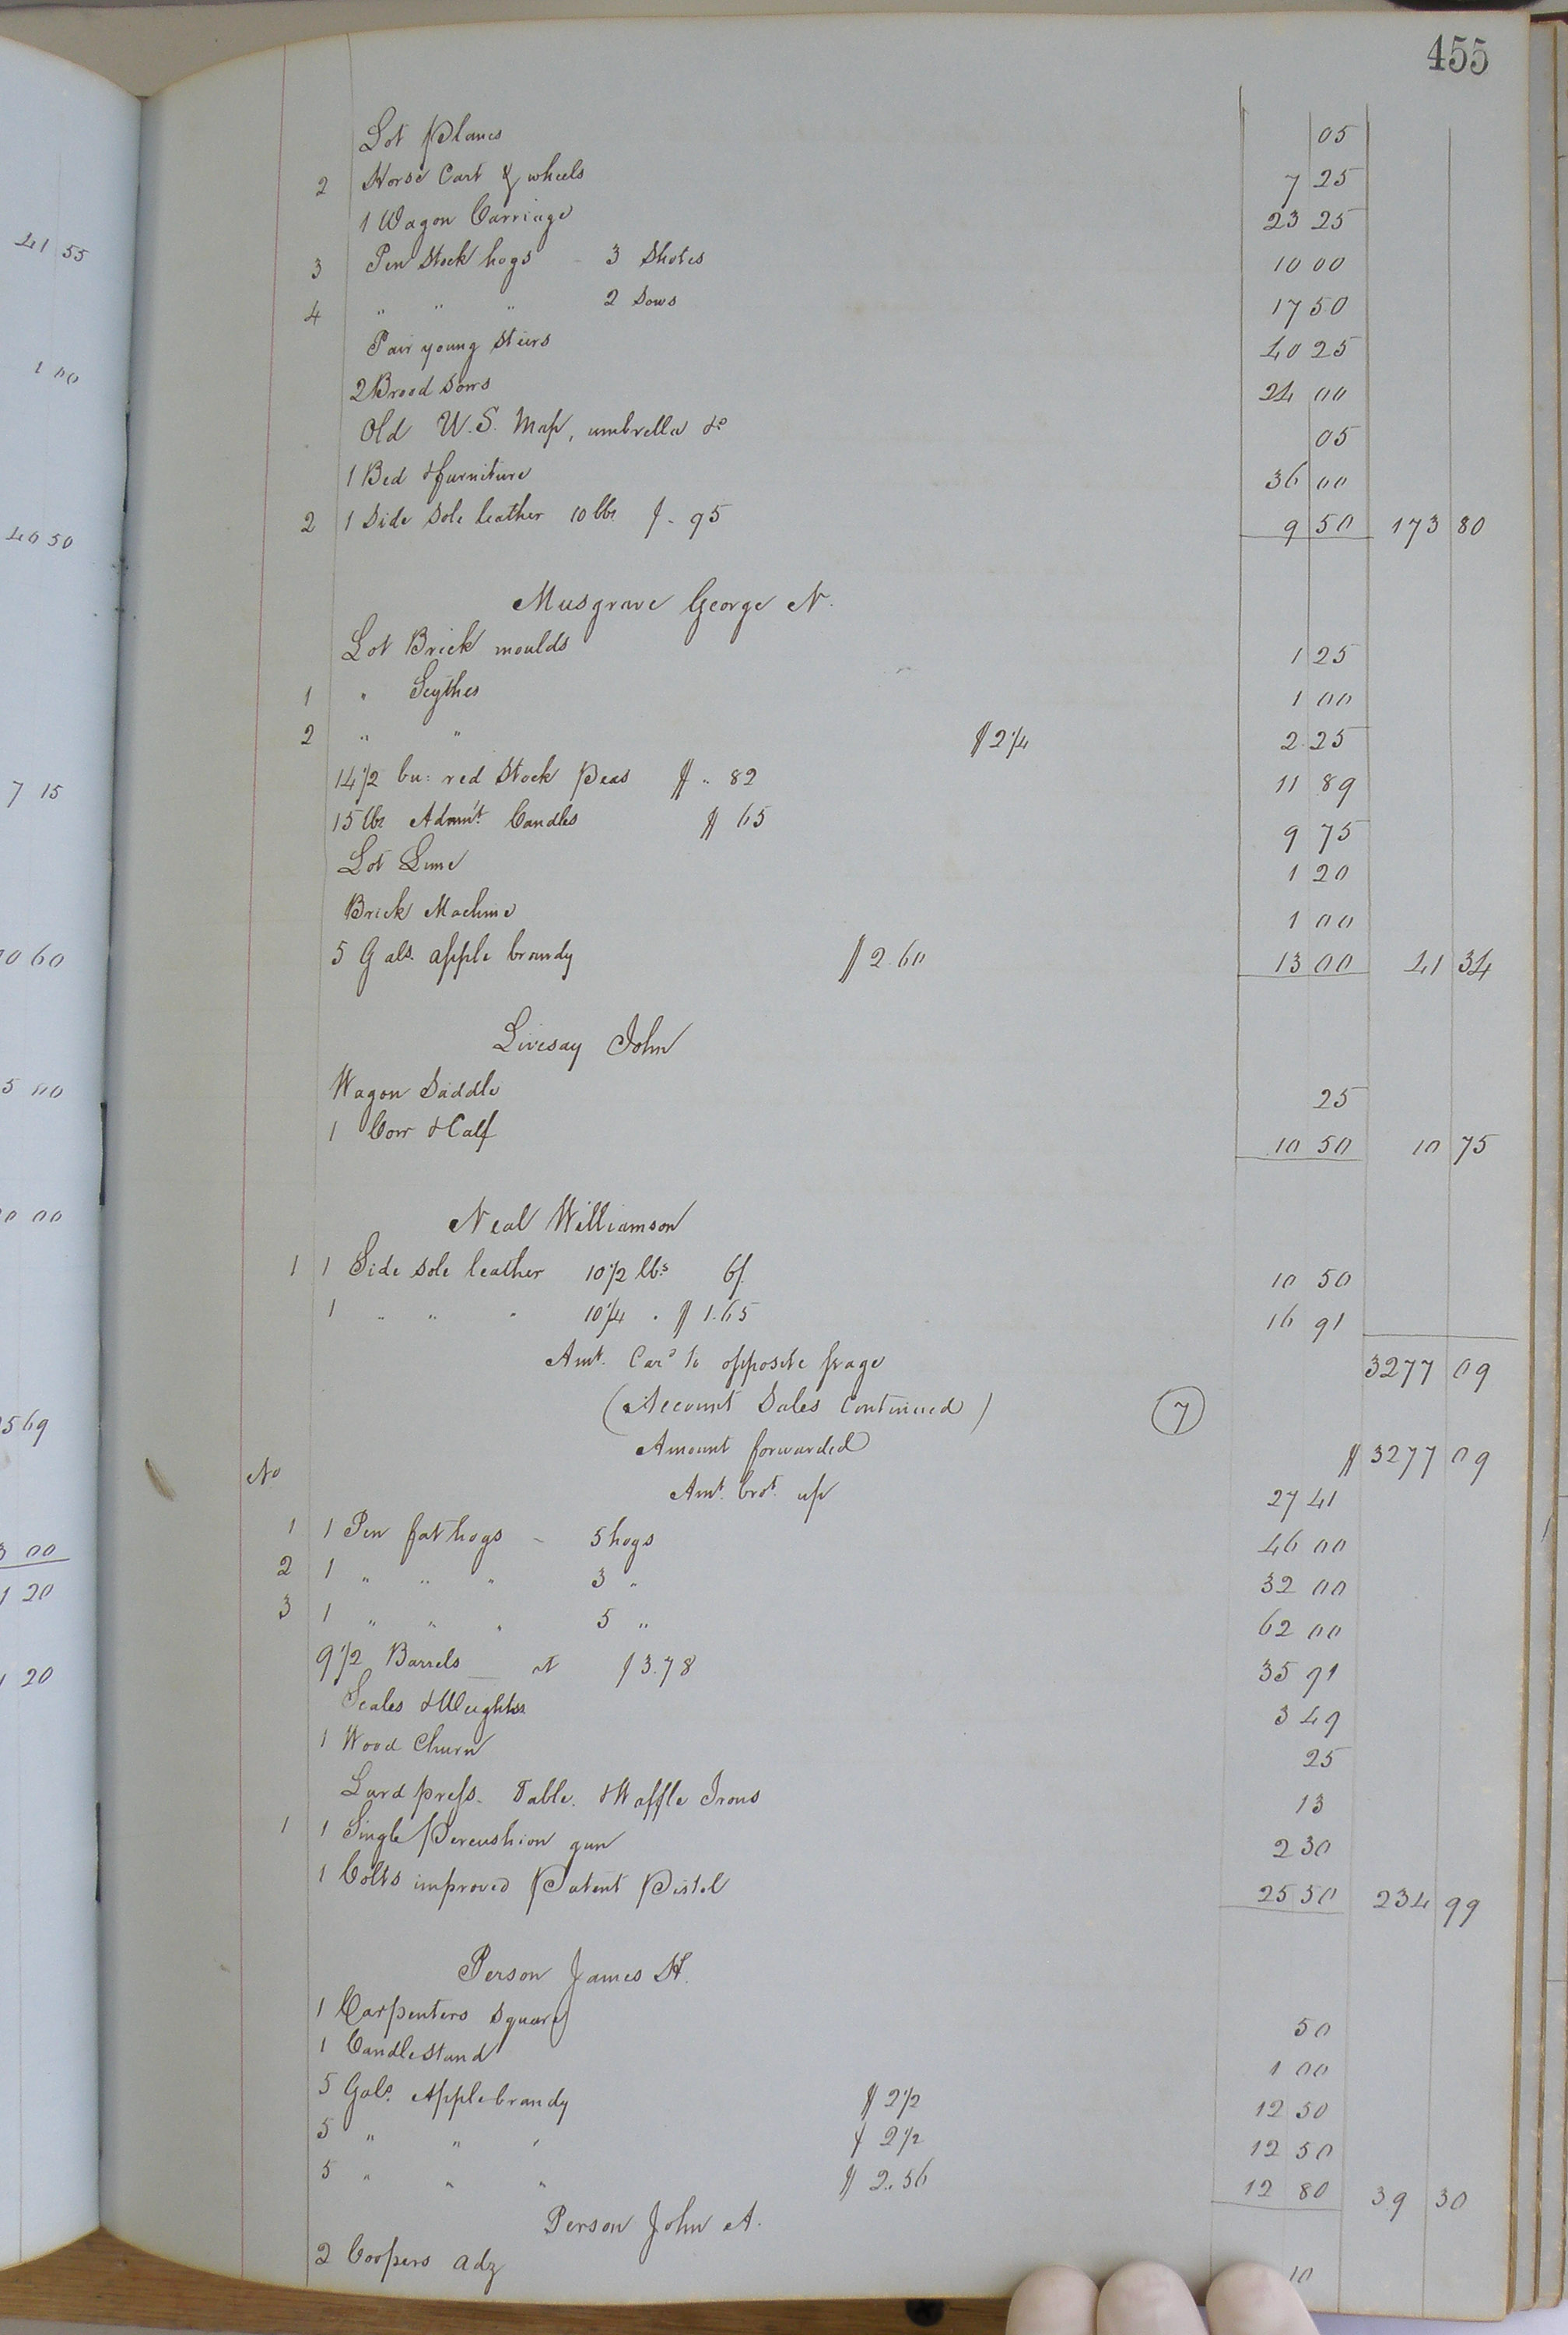 455
Lot Planes 05
2 Horse Cart & wheels 7 25
1 Wagon Carriage 23 25
3 Pen Stock hogs - 3 Shotes 10 00
4 " " " 2 Sows 17 50
Pair young Steers 40 25
2 Brood Sows 24 00
Old U.S. Map, umbrella &c 05
1 Bed & furniture 36 00
2 1 Side Sole leather 10 lbs $ . 95 9 50 173 80
Musgrave George N.
Lot Brick moulds 1 25
1 " Scythes 1 00
2 " " $ 2 1/4 2.25
14 1/2 bu: red Stock Peas $ .. 82 11 89
15 lbs Adam't Candles $ 65 9 75
Lot Lime 1 20
Brick Machine 1 00
5 Gals. apple brandy $ 2.60 13 00 41 34
Livesay John
Wagon Saddle 25
1 Cow & Calf 10 50 10 75
Neal Williamson
1 1 Side Sole leather 10 1/2 lbs 6/. 10 50
1 " " " 10 1/4 " $ 1.65 16 91
Amt. Card to opposite page 3277 09
(Account Sales Continued) 7
Amount forwarded $ 3277 09
No Amt. brot. up 27 41
1 1 Pen fat hogs - 5 hogs 46 00
2 1 " " " 3 " 32 00
3 1 " " " 5 " 62 00
9 1/2 Barrels at $ 3.78 35 91
Scales & Weights 3 49
1 Wood Churn 25
Lard press. Table. & Waffle Irons 13
1 1 Single Percushion gun 2 30
1 Colts improved Patent Pistol 25 50 234 99
Person James H.
1 Carpenters Square 50
1 Candlestand 1 00
5 Gals. Apple brandy $ 2 1/2 12 50
5 " " " $ 2 1/2 12 50
5 " " " $ 2.56 12 80 39 30
Person John A.
2 Coopers adz 10
41 55
1 00
40 50
7 15
0 60
5 00
0 00
569
3 00
1 20
1 20